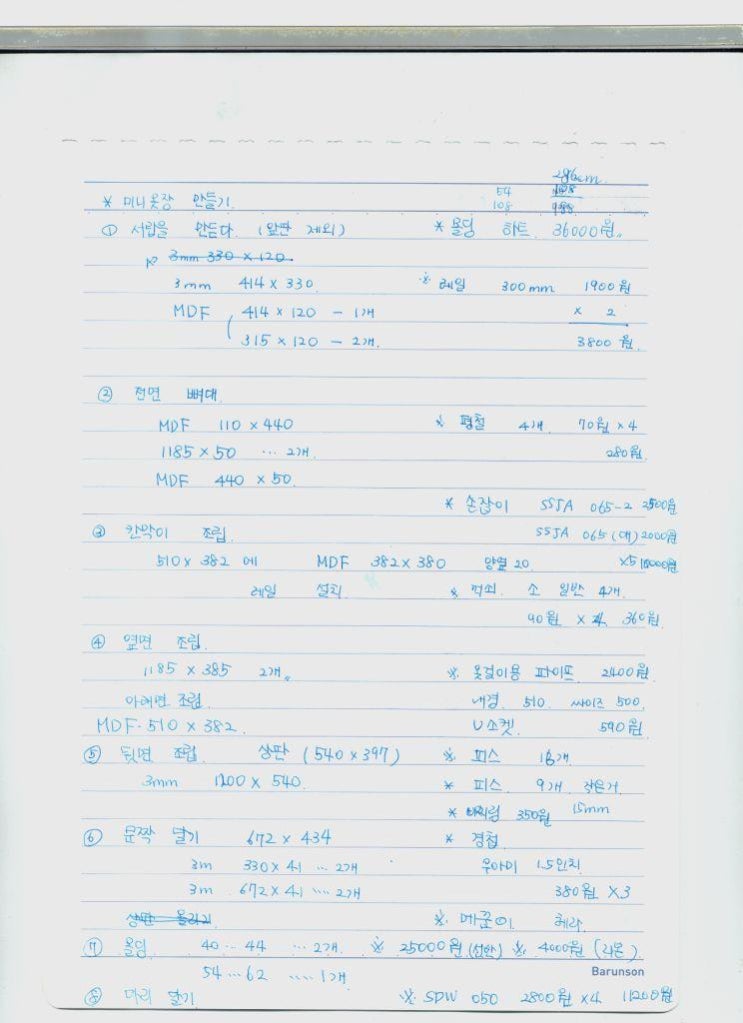 286cm
* 미니옷장 만들기 54
108
① 서랍을 만든다. (앞판 제외) * 몰딩 하트 36000원..
3mm 330 × 120
3mm 414 × 330 ※ 레일 300mm 1900원
MDF 414 × 120 - 1개 × 2
315 × 120 - 2개. 3800원.
② 전면 뼈대
MDF 110 × 440 ※ 평철 4개 70원 ×4
1185 × 50 ... 2개. 280원.
MDF 440 × 50.
* 손잡이 SSJA 065-2 2500원
③ 칸막이 조립. SSJA 065 (대) 2000원
510 × 382 에 MDF 382 × 380 양열 20. ×5 10000원
레일 설치. ※ 꺽쇠. 소 일반 4개.
90원 × 4 360원.
④ 옆면 조립.
1185 × 385 2개. ※ 옷걸이용 파이프 2400원
아래면 조립. 내경. 510. 싸이즈 500.
MDF. 510 × 382. U소켓. 590원.
⑤ 뒷면 조립 상판 (540 × 397) ※ 피스 16개.
3mm 1200 × 540. * 피스 9개 작은거.
* 350원 15mm
⑥ 문짝 달기 672 × 434 * 경첩.
3m 330 × 41 ... 2개 우아미 1.5인치
3m. 672 × 41 .... 2개 380원 ×3
상판 올리기 ※. 메꾼이 헤라.
⑦ 몰딩. 40 ... 44 ... 2개. ※ 25000원 ※ 4000원
54 ... 62 ..... 1개 Barunson
⑧ 다리 달기 ※ SDW 050 2800원 ×4 11200원